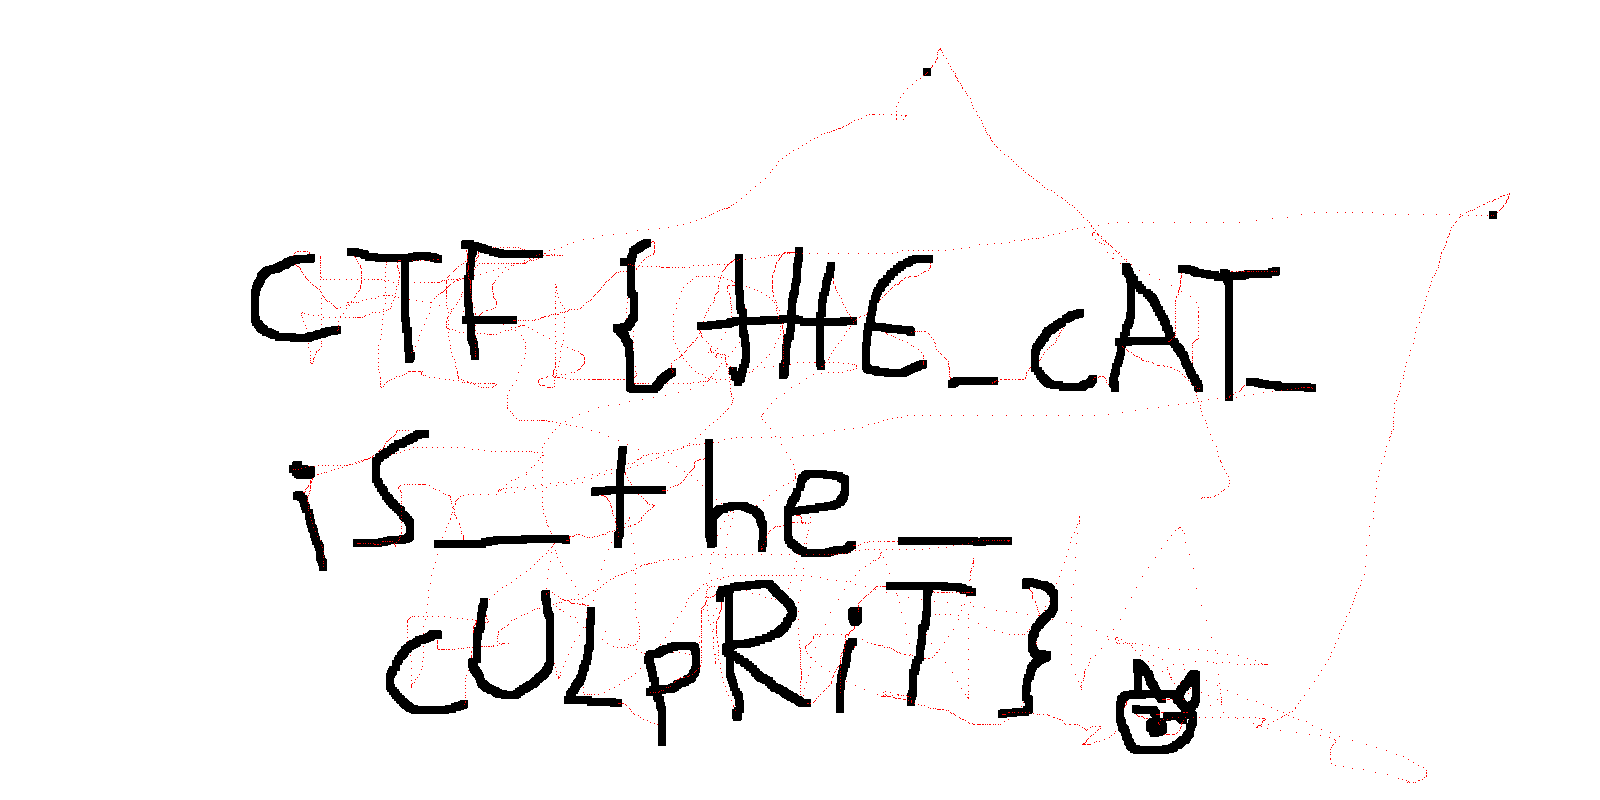 CTF{tHE_cAT_
is_the_
cULpRiT}